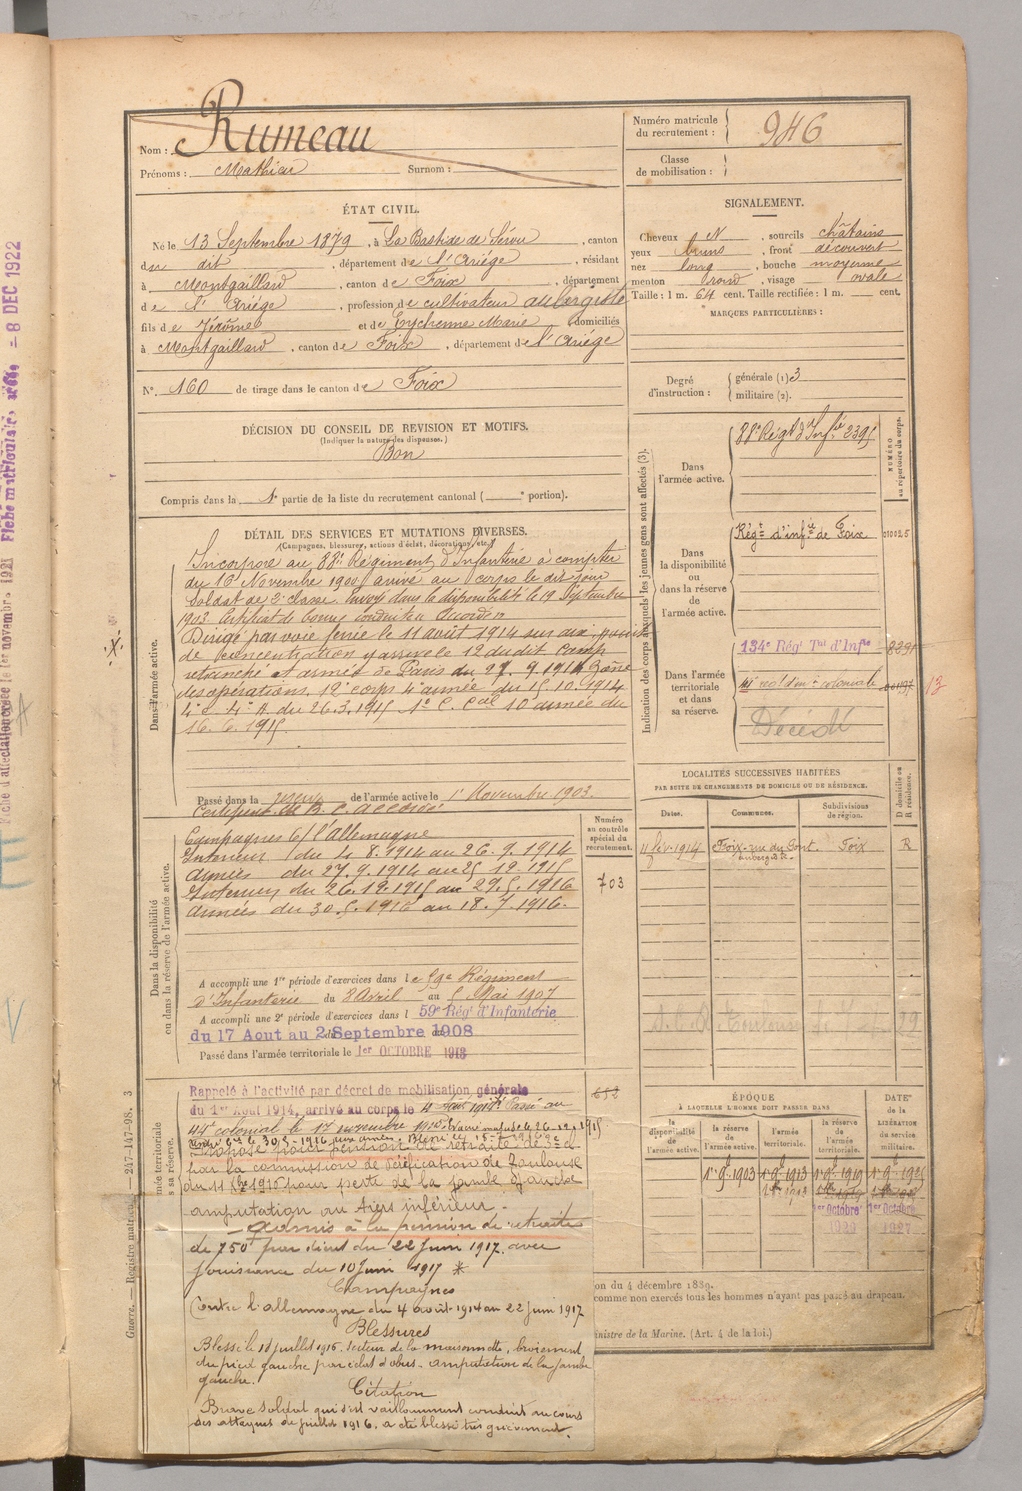 Nom : Rumeau
Prénoms : Mathieu Surnom :
Numéro matricule du recrutement : 946
Classe de mobilisation :
ÉTAT CIVIL.
Né le 13 Septembre 1879, à La Bastide de Sérou, canton
du dit, département de l'Ariége, résidant
à Montgaillard, canton de Foix, département
de l'Ariége, profession de cultivateur aubergiste
fils de Jérôme et de Eychenne Marie, domiciliés
à Montgaillard, canton de Foix, département de l'Ariége
N° 160 de tirage dans le canton de Foix
SIGNALEMENT.
Cheveux N, sourcils châtains
yeux bruns, front découvert
nez long, bouche moyenne
menton rond, visage ovale
Taille : 1 m. 64 cent. Taille rectifiée : 1 m. cent.
MARQUES PARTICULIÈRES :
Degré d'instruction : générale (1) 3
militaire (2).
DÉCISION DU CONSEIL DE REVISION ET MOTIFS.
(Indiquer la nature des dispenses.)
Bon
Compris dans la 1e partie de la liste du recrutement cantonal ( portion).
DÉTAIL DES SERVICES ET MUTATIONS DIVERSES.
(Campagnes, blessures, actions d'éclat, décorations, etc.)
Dans l'armée active.
Incorporé au 88e Régiment d'Infanterie à compter
du 16 Novembre 1900, arrivé au corps le dit jour
soldat de 2e classe. Envoyé dans la disponibilité le 19 Septembre
1903. Certificat de bonne conduite Accordé
Dirigé par voie ferrée le 11 août 1914 sur
de concentration y arrive le 12 du dit camp
retranché et armée de Paris du 27.9.1914 Zône
des opérations. 12e corps 4e armée du 15.10.1914
du 26.3.1915 10 armée du
16.6.1915.
Passé dans la réserve de l'armée active le 1er Novembre 1903.
Certificat de B. C. Accordé
Dans la disponibilité ou dans la réserve de l'armée active.
Campagnes c/ l'allemagne
Intérieur du 4.8.1914 au 26.9.1914
Armées du 27.9.1914 au 25.12.1915
Intérieur du 26.12.1915 au 29.5.1916
Armées du 30.5.1916 au 18.7.1916.
Numéro au contrôle spécial du recrutement.
703
A accompli une 1re période d'exercices dans le 59e Régiment
d'Infanterie du 8 Avril au 5 Mai 1907
A accompli une 2e période d'exercices dans l 59e Rég' d'Infanterie
du 17 Aout au 2 Septembre 1908
Passé dans l'armée territoriale le 1er OCTOBRE 1913
Rappelé à l'activité par décret de mobilisation générale
du 1er Août 1914, arrivé au corps le 4 Août 1914. Passé au
44e colonial le 17 novembre 1915.
652
Proposé pour pension de retraite de
par la commission de Vérification de Toulouse
du 11 1916 pour perte de la jambe gauche
amputation au tiers inférieur.
Admis à la pension de retraite
de 750f par décret du 22 Juin 1917, avec
jouissance du 10 Juin 1917 *
Campagnes
Contre l'allemagne du 4 août 1914 au 22 Juin 1917
Blessures
Blessé le 18 juillet 1916, secteur de la maisonnette, broiement
du pied gauche par éclat d'obus - amputation de la jambe
gauche.
Citation
Brave soldat qui s'est vaillamment conduit au cours
des attaques de juillet 1916. a été blessé très grièvement.
Indication des corps auxquels les jeunes gens sont affectés (3).
NUMÉRO au répertoire du corps.
Dans l'armée active. 88e Régt d'Infie 2395
Dans la disponibilité ou dans la réserve de l'armée active. Régt d'infie de Foix 01002.5
Dans l'armée territoriale et dans sa réserve. 134e Rég' Tal d'Infie
44e col d'infie coloniale
13
Décédé
LOCALITÉS SUCCESSIVES HABITÉES
PAR SUITE DE CHANGEMENTS DE DOMICILE OU DE RÉSIDENCE.
Dates. Communes. Subdivisions de région. D. domicile ou R. résidence.
11 fév. 1914 Foix, rue du Pont. Foix R
aubergiste
ÉPOQUE
À LAQUELLE L'HOMME DOIT PASSER DANS
la disponibilité de l'armée active. la réserve de l'armée active. l'armée territoriale. la réserve de l'armée territoriale. DATE de la LIBÉRATION du service militaire.
1er 9bre 1903 1er 9bre 1913 1er 9bre 1919 1er 9bre 1925
1er Octobre 1er Octobre
1927
on du 4 décembre 1889.
comme non exercés tous les hommes n'ayant pas passé au drapeau.
inistre de la Marine. (Art. 4 de la loi.)
Guerre. — Registre matricule — 247-147-98. 3
Fiche matriculaire
- 8 DEC 1922
Fiche d'affectation
1er novembre 1921